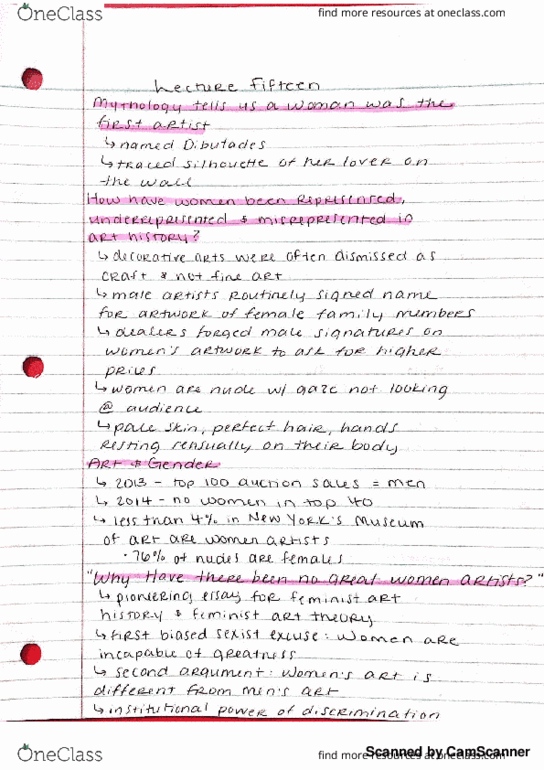 OneClass
find more resources at oneclass.com
Lecture Fifteen
Mythology tells us a woman was the
first artist
↳ named Dibutades
↳ traced silhouette of her lover on
the wall
How have women been represented,
underrepresented & misrepresented in
art history?
↳ decorative arts were often dismissed as
craft & not fine art
↳ male artists routinely signed name
for artwork of female family members
↳ dealers forged male signatures on
women's artwork to ask for higher
prices
↳ women are nude w/ gaze not looking
@ audience
↳ pale skin, perfect hair, hands
resting sensually on their body
Art & Gender
↳ 2013 - top 100 auction sales = men
↳ 2014 - no women in top 40
↳ less than 4% in New York's Museum
of art are women artists
• 76% of nudes are females
"Why Have there been no great women artists?"
↳ pioneering essay for feminist art
history & feminist art theory
↳ first biased sexist excuse: women are
incapable of greatness
↳ second argument: women's art is
different from men's art
↳ institutional power of discrimination
OneClass
find more resources at oneclass.com
Scanned by CamScanner